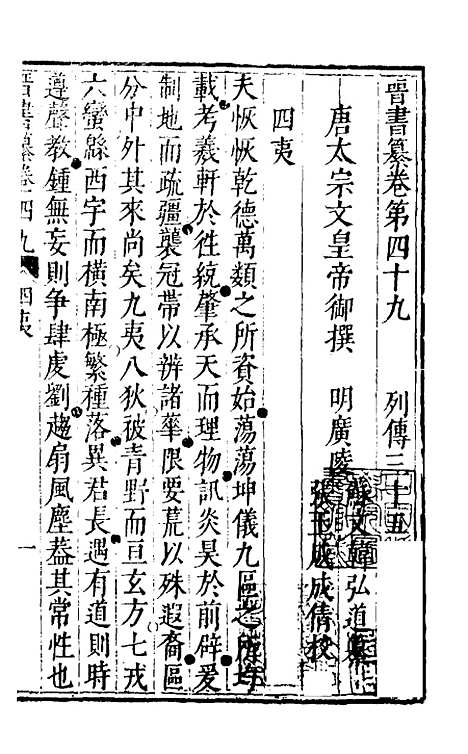 晉書纂卷第四十九　列傳三十五
唐太宗文皇帝御撰　明廣陵蘇文韓弘道纂
張玉成成倩校
四夷
夫恢恢乾德萬類之所資始蕩蕩坤儀九區之所均
載考羲軒於徃統肇承天而理物訊炎昊於前辟爰
制地而疏疆襲冠帶以辨諸華限要荒以殊遐裔區
分中外其來尚矣九夷八狄被青野而亘玄方七戎
六蠻緜西宇而橫南極繁種落異君長遇有道則時
遵聲教鍾無妄則争肆虔劉趨扇風塵葢其常性也
晉書纂卷四九　四夷　一